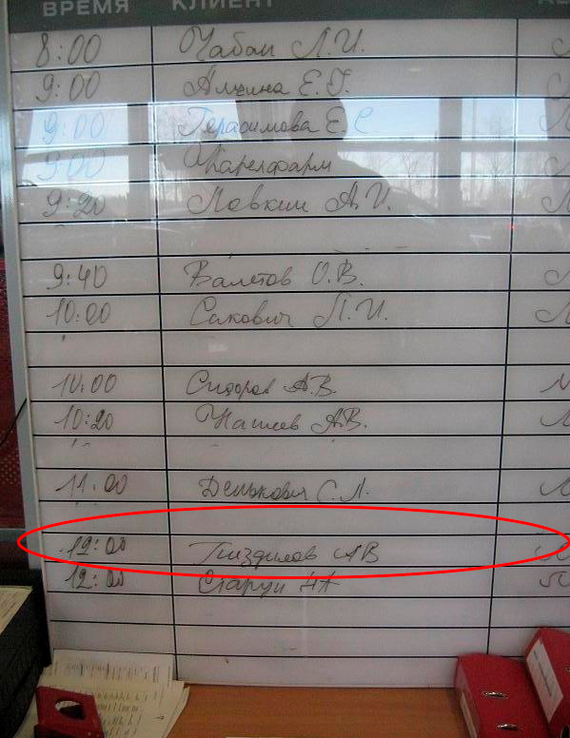 ВРЕМЯ КЛИЕНТ
8:00 Чабан Л.И.
9:00 Алхина Е.Г.
9:00 Герасимова Е.С
9:00 Карелфарм
9:20 Ловкин А.И.
9:40 Валетов О.В.
10:00 Сакович П.И.
10:00 Сидоров А.В.
10:20 Нашев А.В.
11:00 Денькович С.Л.
12:00 Пиздилов АВ
12:00 Старун НА